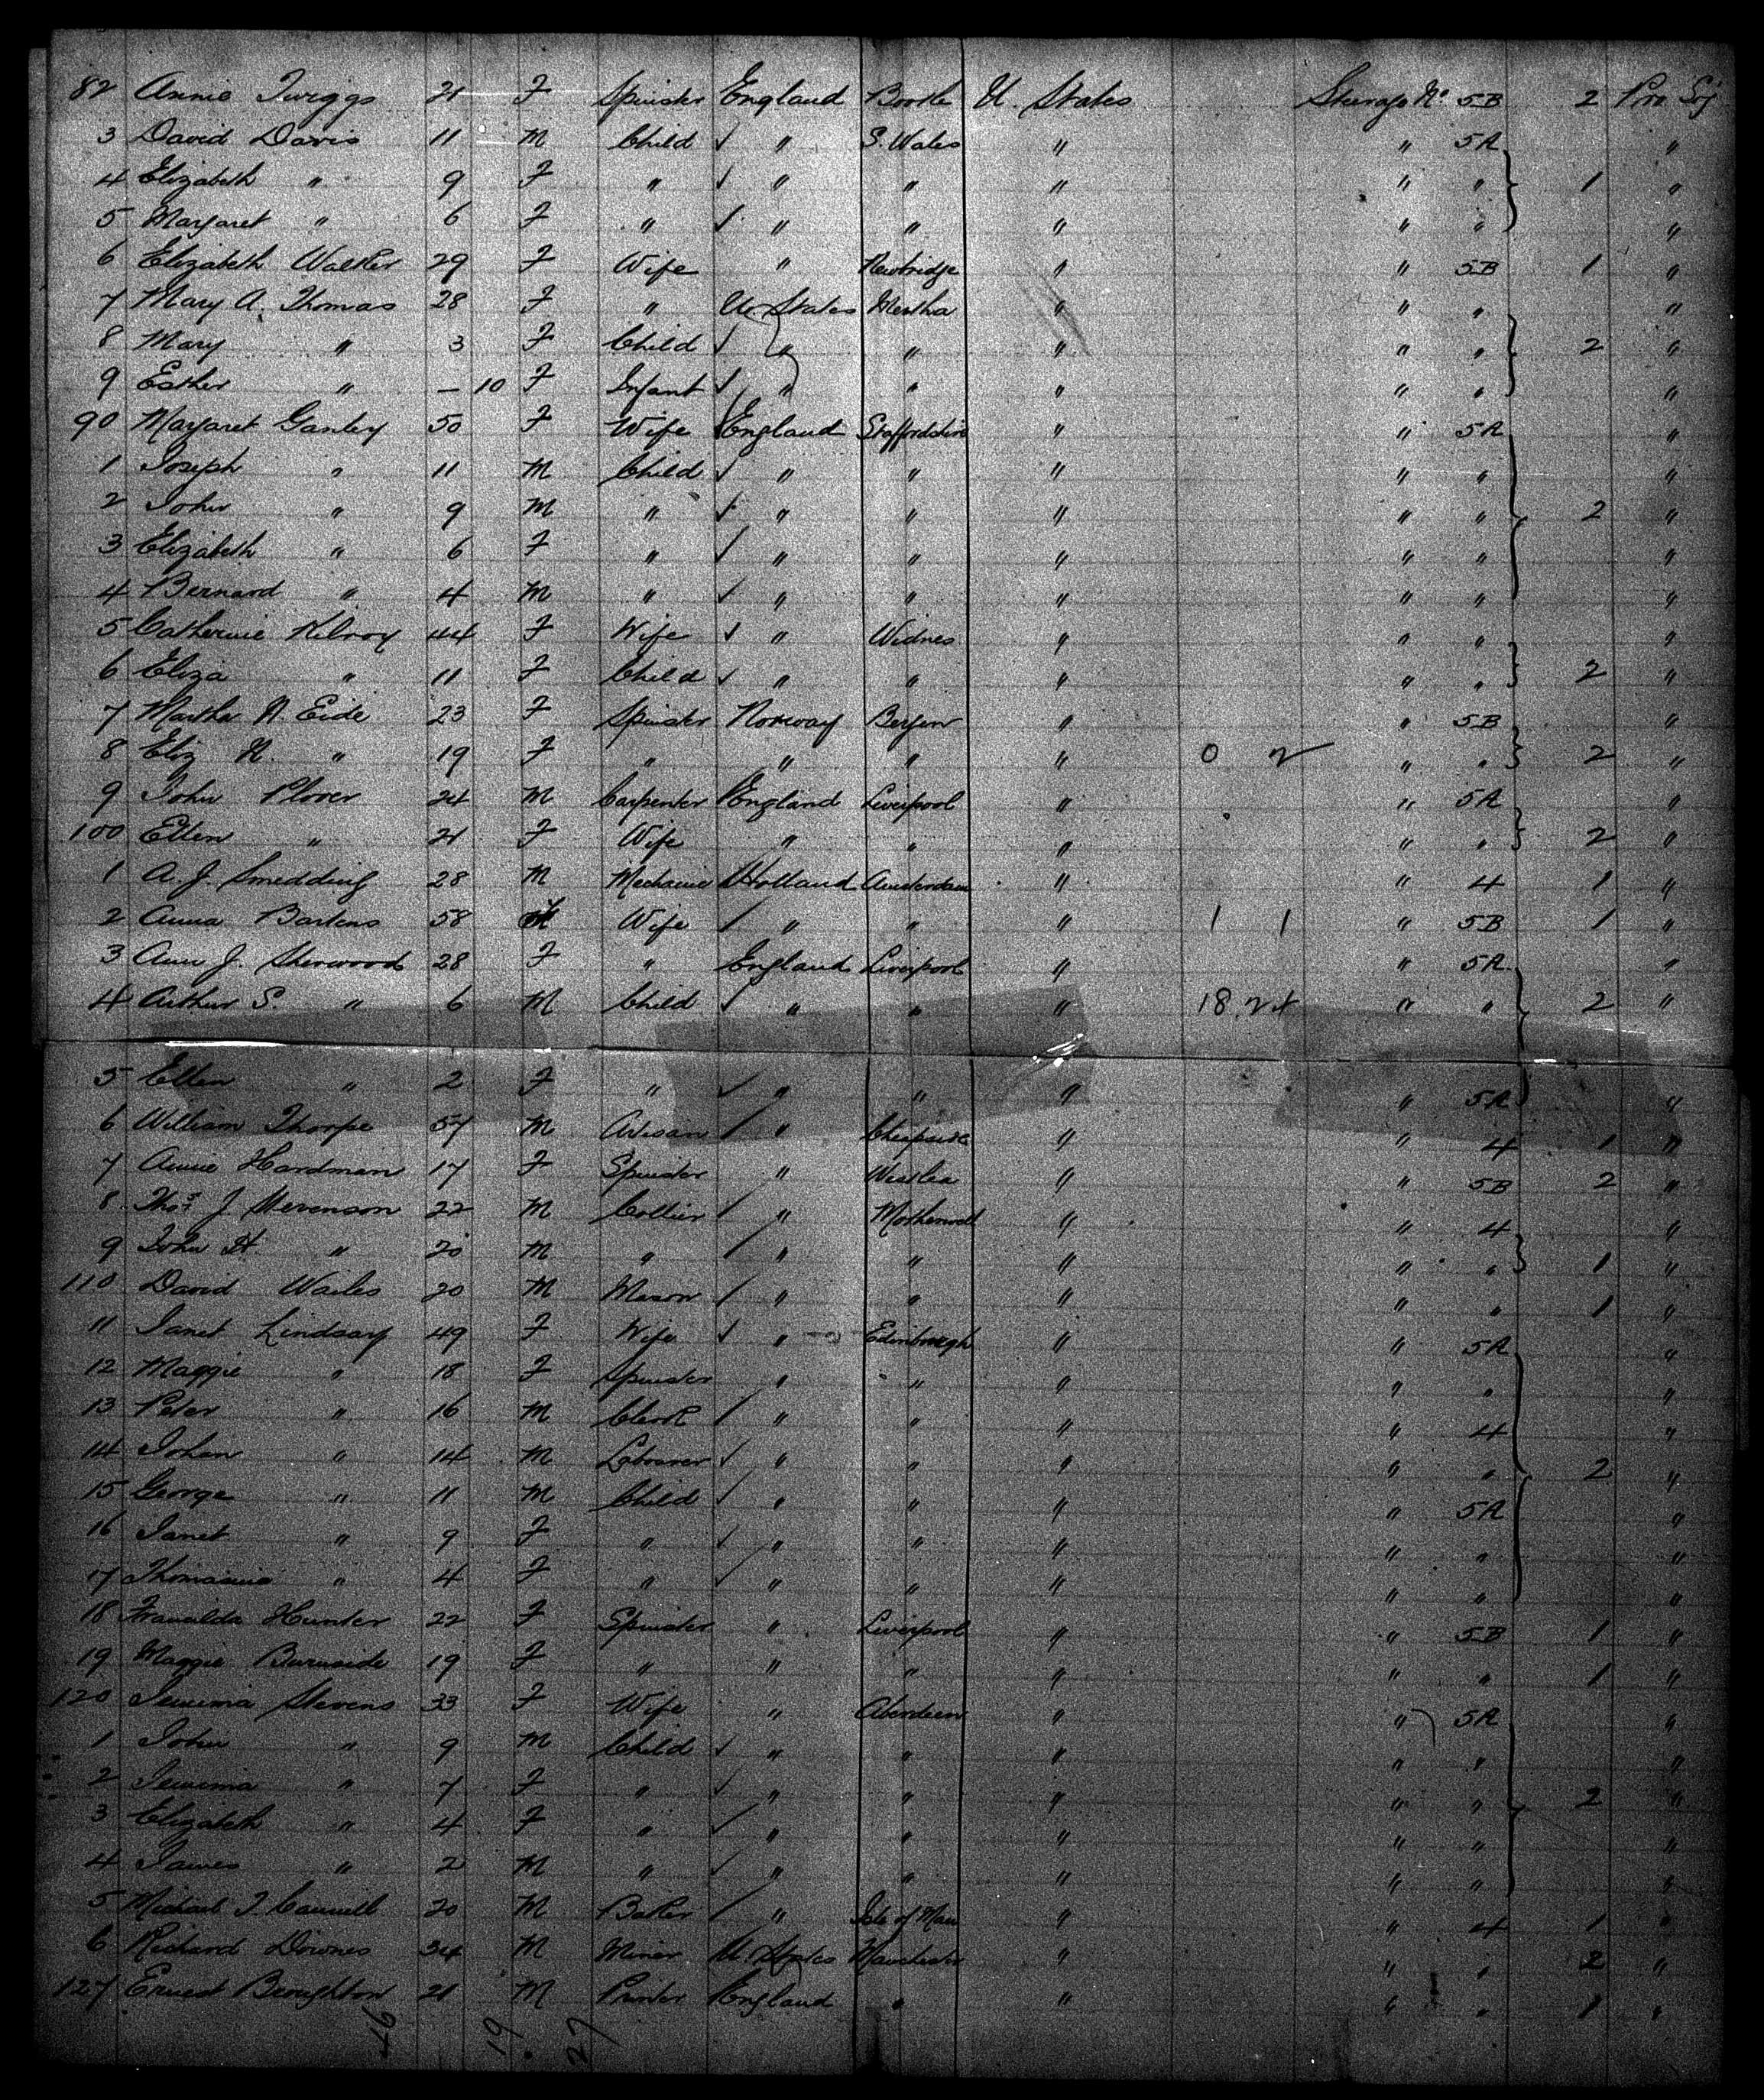 82 Annie Twiggs 21 F Spinster England Bootle U. States Steerage No. 5B 2 Pro. Soj
3 David Davis 11 M Child ✓ " S. Wales " " 5A "
4 Elizabeth " 9 F " ✓ " " " " " 1 "
5 Margaret " 6 F " ✓ " " " " " "
6 Elizabeth Walker 29 F Wife " Newbridge " " 5B 1 "
7 Mary A. Thomas 28 F " U. States Mertha " " " "
8 Mary " 3 F Child ✓ " " " " " 2 "
9 Esther " – 10 F Infant ✓ " " " " " "
90 Margaret Ganley 50 F Wife England Staffordshire " " 5A "
1 Joseph " 11 M Child ✓ " " " " " "
2 John " 9 M " ✓ " " " " " 2 "
3 Elizabeth " 6 F " ✓ " " " " " "
4 Bernard " 4 M " ✓ " " " " " "
5 Catherine Kilroy 44 F Wife ✓ " Widnes " " " "
6 Eliza " 11 F Child ✓ " " " " " 2 "
7 Martha N. Eide 23 F Spinster Norway Bergen " " 5B "
8 Eliz N. " 19 F " " " " 0 2 " " 2 "
9 John Plover 24 M Carpenter England Liverpool " " 5A "
100 Ellen " 21 F Wife " " " " " 2 "
1 A. J. Smedding 28 M Mechanic Holland Amsterdam " " 4 1 "
2 Anna Bartens 58 F Wife / " " " 1 1 " 5B 1 "
3 Ann J. Sherwood 28 F " England Liverpool " " 5A "
4 Arthur S. " 6 M Child ✓ " " " 18 24 " " 2 "
5 Ellen " 2 F " ✓ " " " " 5A "
6 William Thorpe 57 M Artisan / " Cheapside " " 4 1 "
7 Annie Hardman 17 F Spinster " " " 5B 2 "
8 Thos. J Stevenson 22 M Collier / " Motherwell " " 4 "
9 John H. " 20 M " / " " " " " 1 "
110 David Wailes 20 M Mason / " " " " " 1 "
11 Janet Lindsay 49 F Wife ✓ " Edinborough " " 5A "
12 Maggie " 18 F Spinster " " " " " "
13 Peter " 16 M Clerk / " " " " 4 "
14 John " 14 M Labourer ✓ " " " " " 2 "
15 George " 11 M Child ✓ " " " " 5A "
16 Janet " 9 F " ✓ " " " " " "
17 Thomasina " 4 F " ✓ " " " " " "
18 Hunter 22 F Spinster " Liverpool " " 5B 1 "
19 Maggie Burnside 19 F " " " " " " 1 "
120 Jemima Stevens 33 F Wife " Aberdeen " " 5A "
1 John " 9 M Child ✓ " " " " " "
2 Jemima " 7 F " ✓ " " " " " 2 "
3 Elizabeth " 4 F " ✓ " " " " " "
4 James " 2 M " ✓ " " " " " "
5 Michael J. Cannell 20 M Baker / " Isle of Man " " 4 1 "
6 Richard Downes 34 M Miner U. States Manchester " " " 2 "
127 Ernest Broughton 21 M Printer England " " " " 1 "
46 19 27